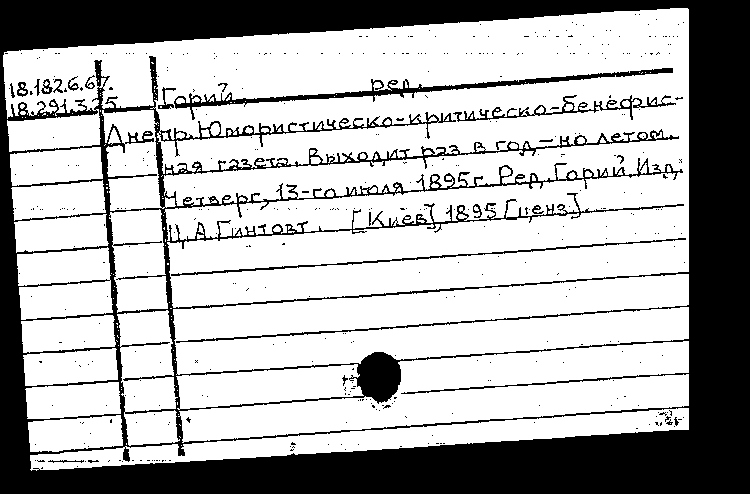 18.182.6.67.
18.291.3.25
Горий, ред.
Днепр. Юмористическо-критическо-бенефис-
ная газета. Выходит раз в год – но летом.
Четверг, 13-го июля 1895г. Ред. Горий. Изд.
Ц.А. Гинтовт. [Киев], 1895 [ценз].